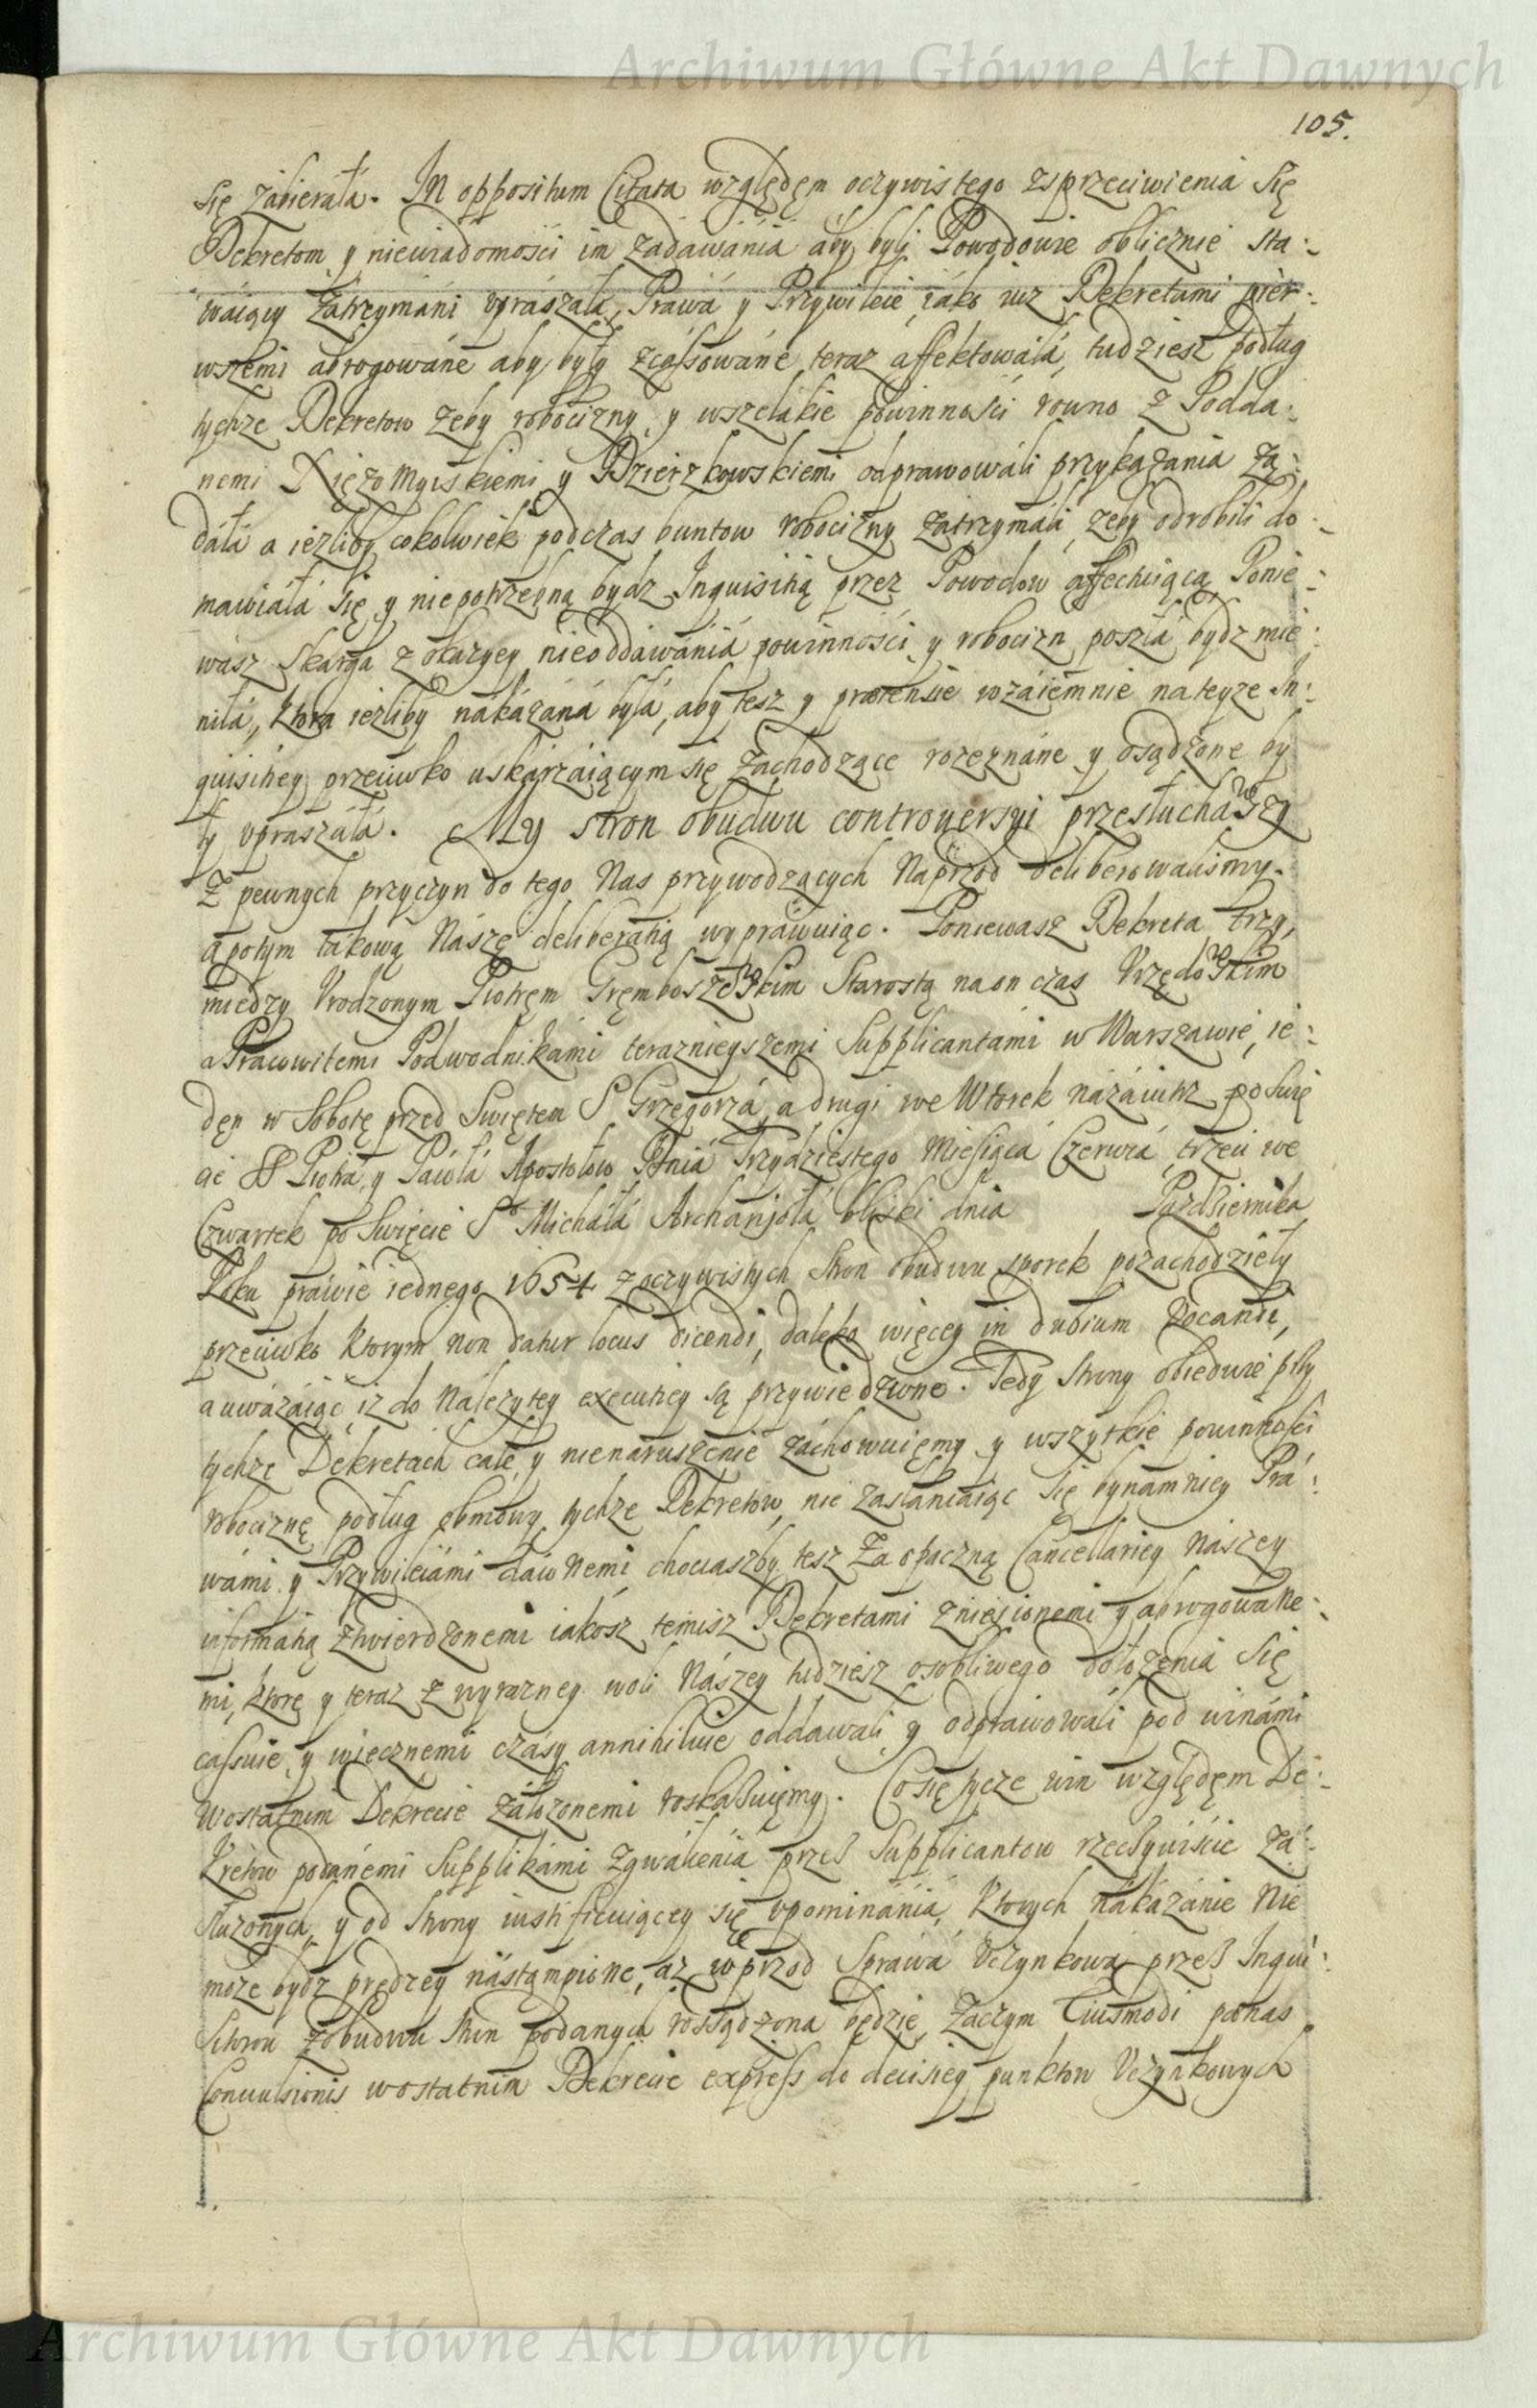 Archiwum Główne Akt Dawnych
105.
się zábierałá. In oppositum Citata względęm oczywistego zsprzeciwienia się
Dekretom y niewiadomości im zadawánia aby byli Powodowie oblicznie sta-
wáiący zátrzymáni upraszáłá, Prawá y Przywileie iáko iuz Dekretami pier-
wszemi abrogowáne aby były zcassowáne teraz affektowáłá, tudziesz podług
tychze Dekretow zeby robocizny y wszelákie powinności rowno z Podda-
nemi Xięzomyiskiemi y Dzierzkowskiemi odprawowáli przykazania zą-
dáłá a iezliby cokolwiek podczas buntow robocizny zátrzymáli, zeby odrobili do-
mawiáłá się, y niepotrzebną bydz Inquisitią przez Powodow affectuiącą, Ponie-
wász skargá z okazyey nieoddawániá powinności y robocizn poszłá bydz mie-
niłá, ktora iezliby nákázáná byłá, aby tesz y prætensie wzáiemnie na teyze In-
quisitiey przeciwko uskárzáiącym się záchodzące rozeznáne y osądzone by
ły upraszáłá. My stron obudwu controuersyi przesłuchawszy
z pewnych przyczyn do tego Nas przywodzących Náprzod deliberowalismy.
a potym tákową Nászę deliberatią wyprawuiąc. Poniewasz Dekreta trzy,
miedzy Vrodzonym Piotręm Gręmboszewskim Starostą na on czas Vrzędowskim
a Pracowitemi Podwodnikámi teraznieyszemi Supplicantámi w Warszawie, ie-
den w Sobotę przed Swiętem S Grzegorzá, a drugi we Wtorek názáiutrz po Swię
cie SS Piotrá y Páwłá Apostołow Dniá Trzydziestego Miesiącá Czerwcá, trzeci we
Czwartek po Swięcie S Micháłá Archanjołá bliski dnia Pazdziernika
Roku práwie iednego 1654 z oczywistych stron obudwu sporek pozachodziły
przeciwko ktorym non datur locus dicendi, daleko więcey in dubium vocandi,
a uwázáiąc iz do Nálezytey executiey są przywiedzione. Tedy strony obiedwie przy
tychze Dekretach cale y nienáruszenie záchowuięmy y wszytkie powinności
robociznę podług obmowy tychze Dekretow, nie zásłaniáiąc się bynamniey Prá-
wámi y Przywileiámi dáwnemi chociaszby tesz za opaczną Cancellariey Nászey
informatią ztwierdzonemi iákosz temisz Dekretami zniesionemi y abrogowane-
mi, ktorę y teraz z wyrazney woli Nászey tudziesz osobliwego dołozęnia się
cassuie, y wiecznemi czásy annihiluie oddawáli, y odprawowáli pod winámi
w ostatnim Dekrecie záłozonemi roskazuięmy. Co się tycze win względęm De-
kretow podánemi Supplikámi zgwałceniá przez Supplicantow rzeczywiście zá-
służonych, y od strony iustificuiącey się upominániá, ktorych nákázánie nie
moze bydz prędzey nástąmpione, az wprzod Spráwá Vczynkowa przez Inqui-
sitorow z obudwu stron podanych rossądzona będzie, Zaczym eiusmodi pænas
Conuulsionis w ostatnim Dekrecie express do decisiey punktow Vczynkowych
Archiwum Główne Akt Dawnych